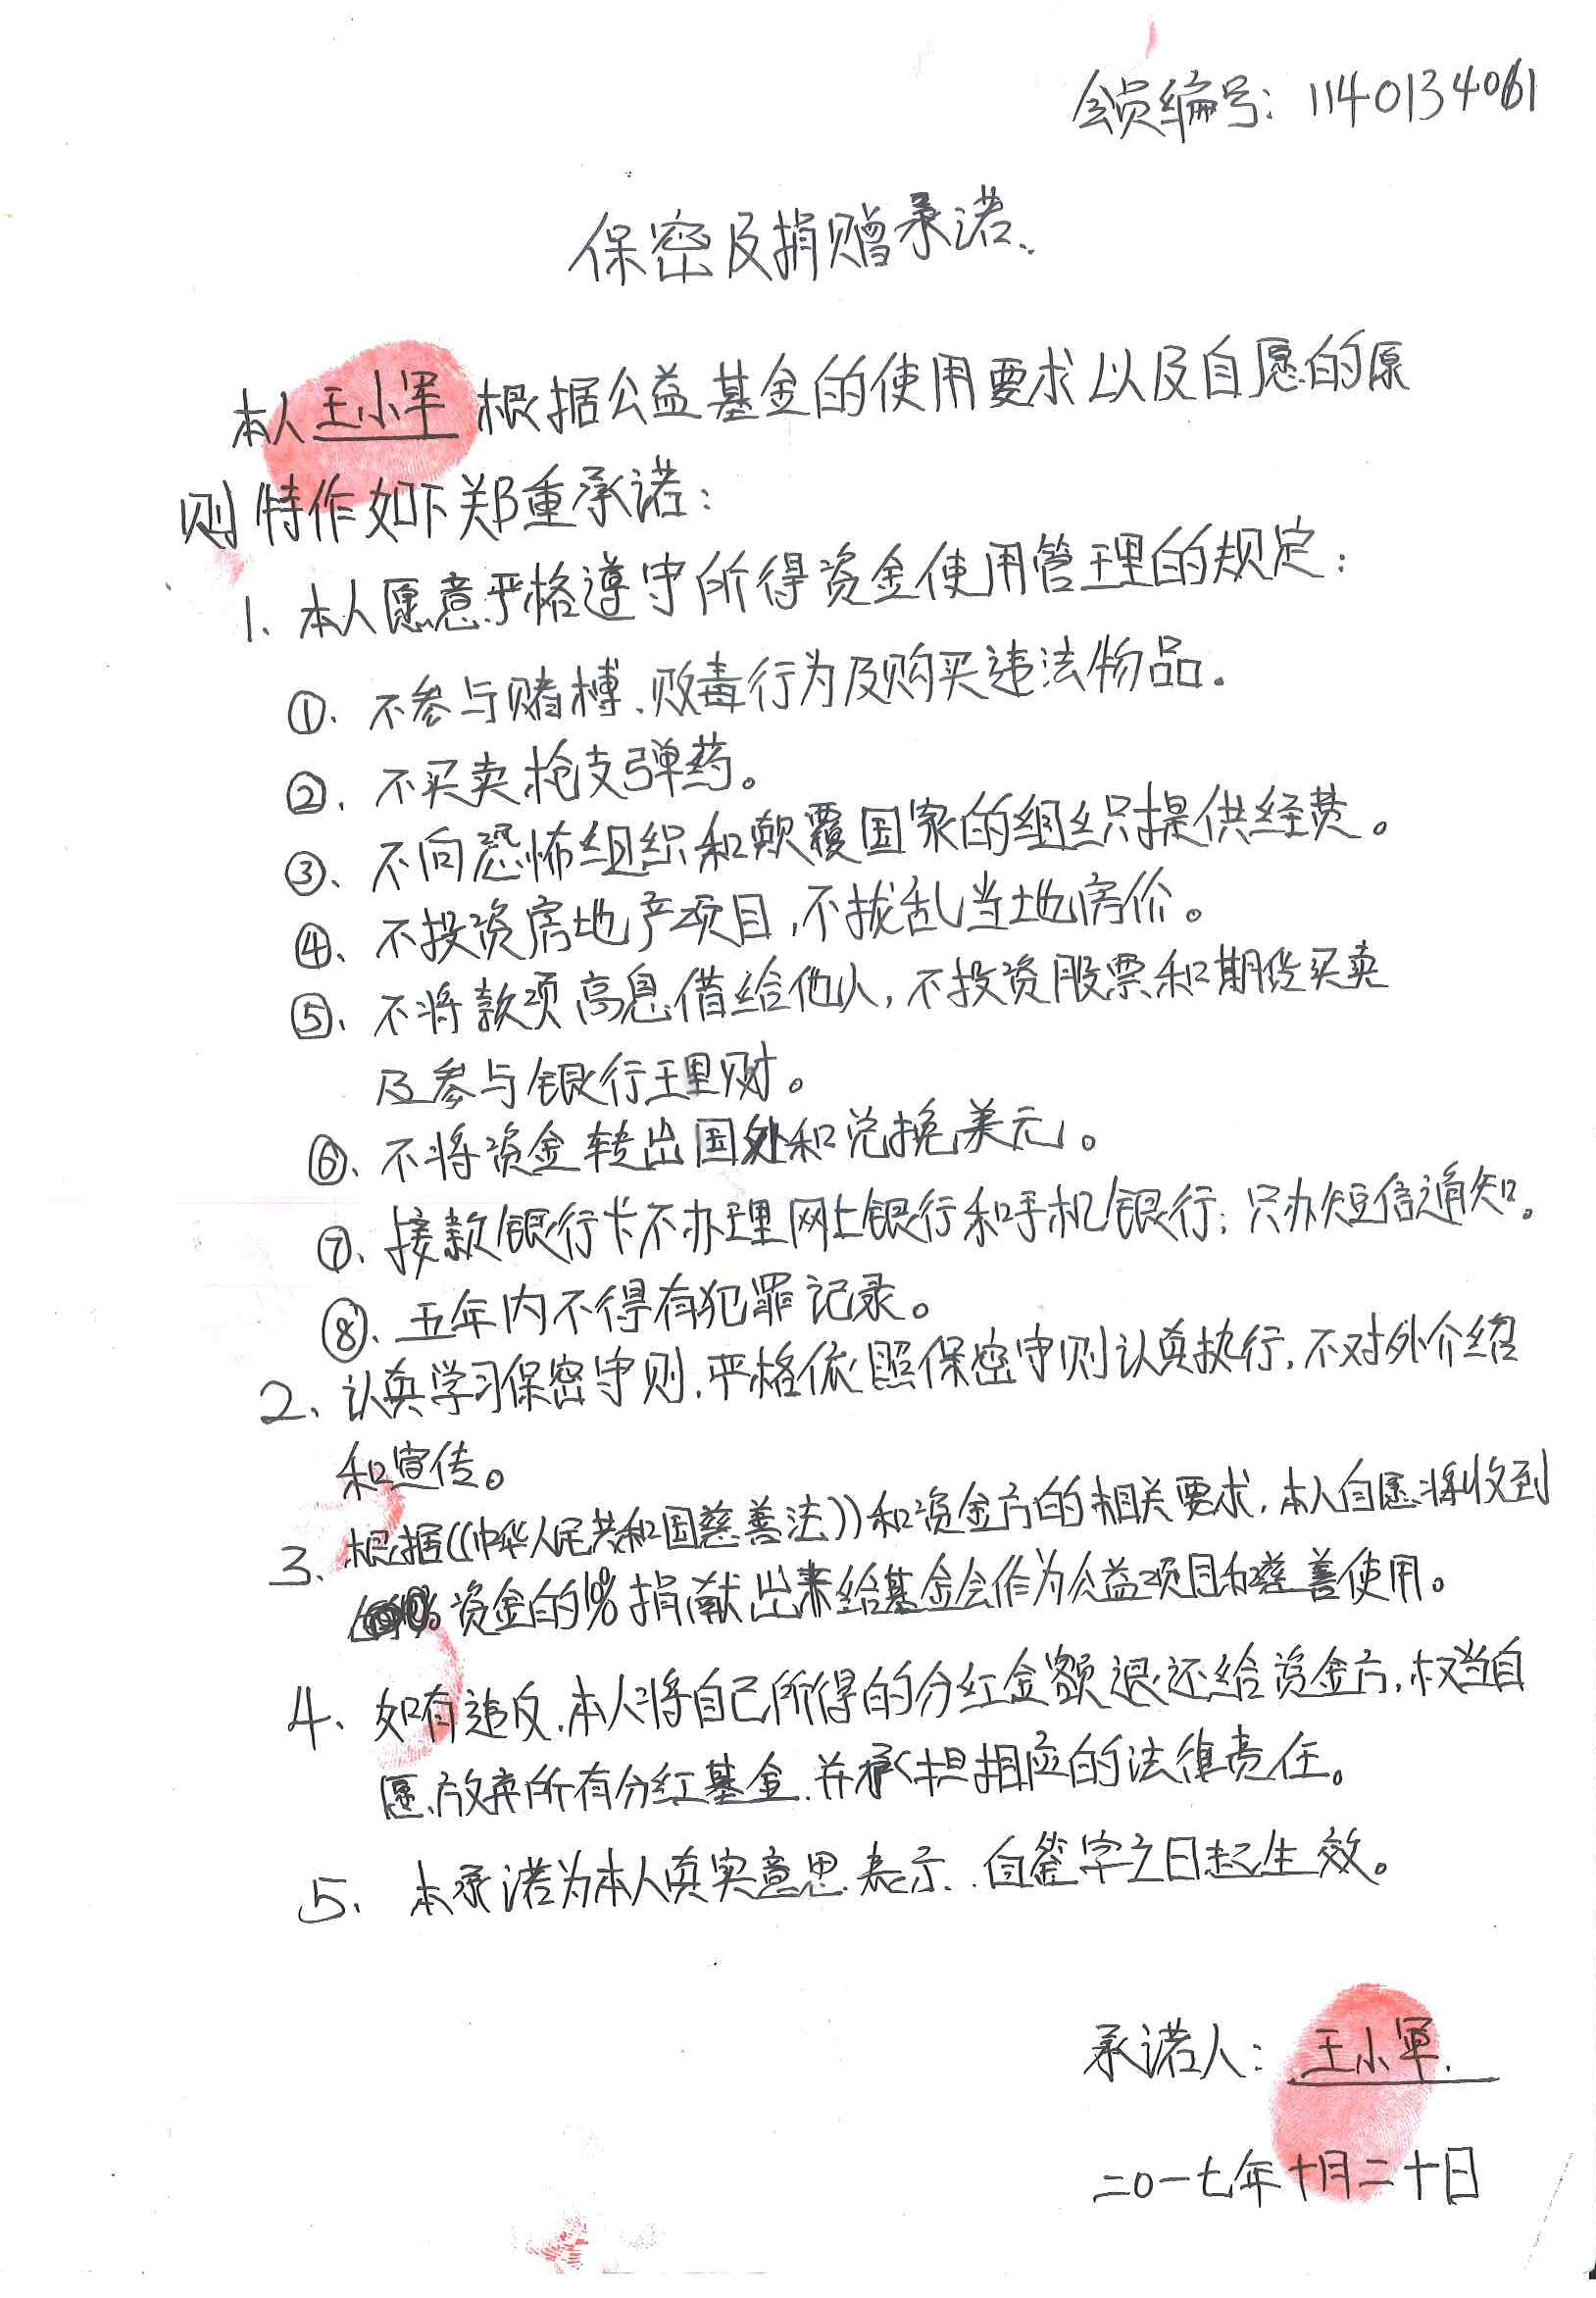 会员编号：1140134061
保密及捐赠承诺、
本人王小军根据公益基金的使用要求以及自愿的原
则特作如下郑重承诺：
1、本人愿意严格遵守所得资金使用管理的规定：
①、不参与赌博、贩毒行为及购买违法物品.
②、不买卖枪支弹药。
③、不向恐怖组织和颠覆国家的组织提供经费。
④、不投资房地产项目，不拔乱当地房价。
⑤、不将款项高息借给他人，不投资股票和期货买卖
及参与银行理财。
⑥、不将资金转出国外和兑换美元。
⑦、接款银行卡不办理网上银行和手机银行；只办短信通知。
⑧、五年内不得有犯罪记录。
2、认真学习保密守则，严格依照保密守则认真执行，不对外介绍
和宣传。
3、根据《中华人民共和国慈善法》和资金方的相关要求，本人自愿将收到
资金的1%捐献出来给基金会作为公益项目和慈善使用。
4、如有违反，本人将自己所得的分红金额退还给资金方，权当自
愿放弃所有分红基金，并承担相应的法律责任。
5、本承诺为本人真实意思表示，自签字之日起生效。
承诺人：王小军.
二〇一七年十月二十日